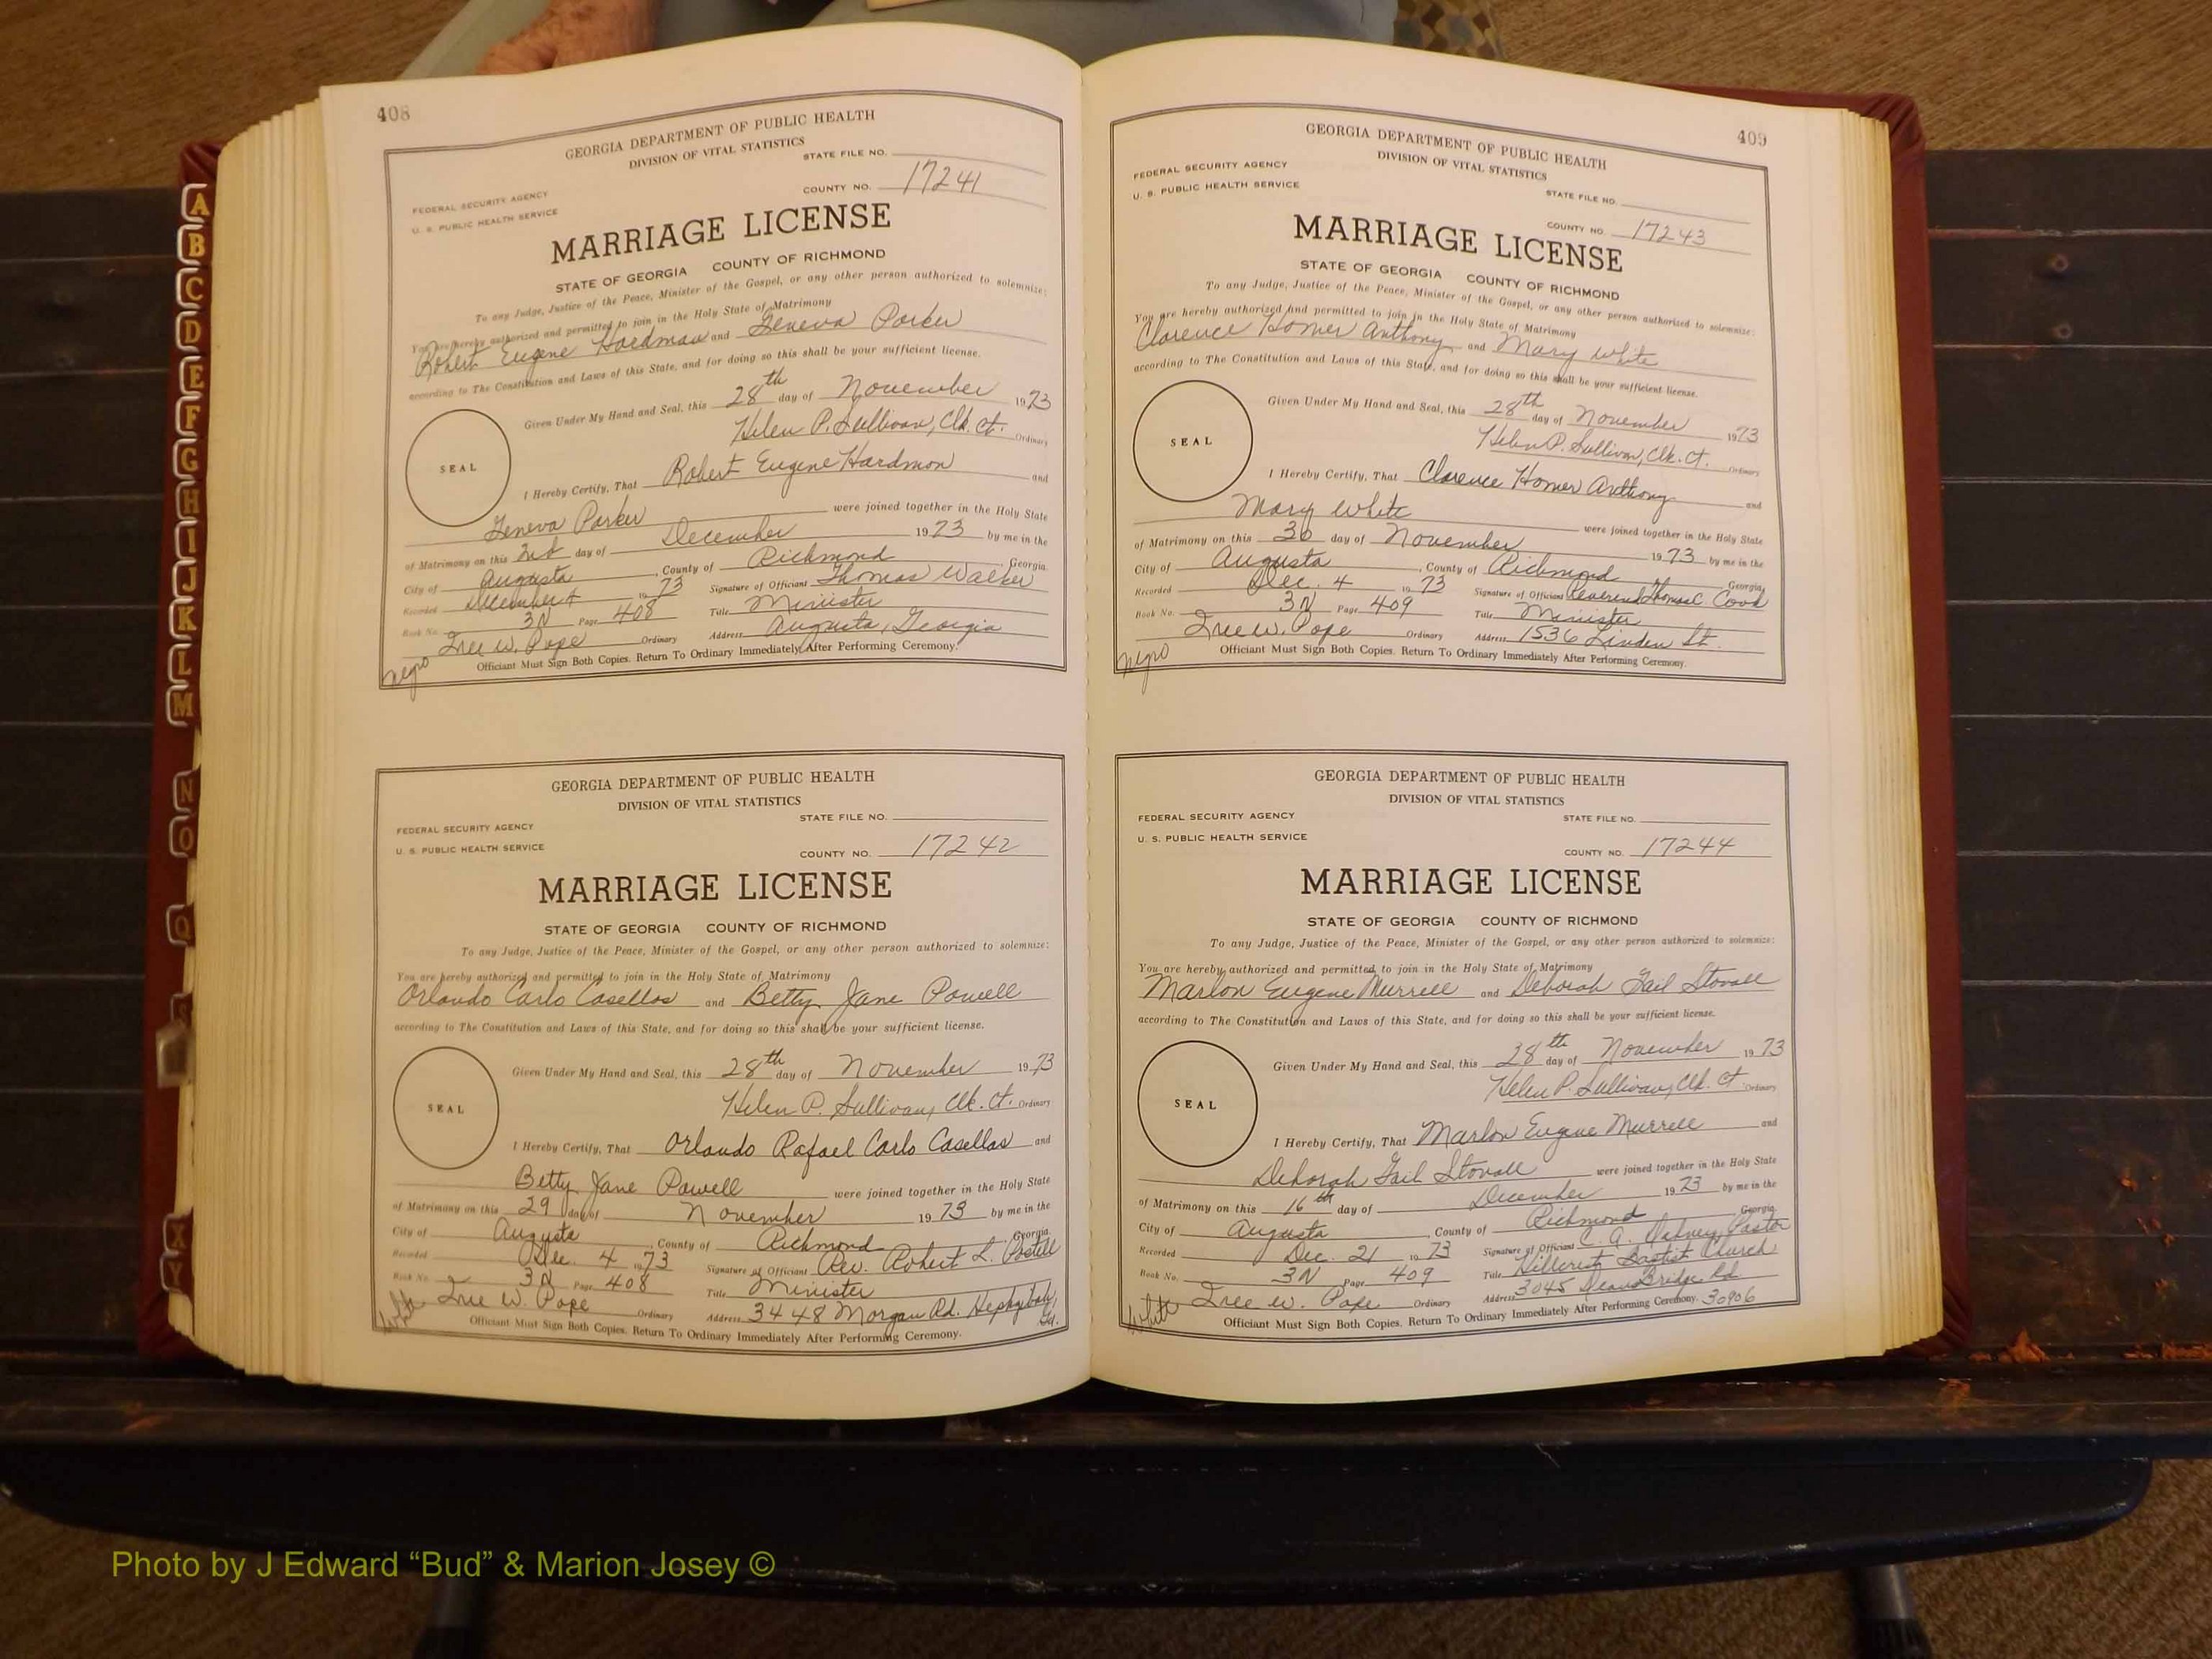 408
GEORGIA DEPARTMENT OF PUBLIC HEALTH
DIVISION OF VITAL STATISTICS
STATE FILE NO.
FEDERAL SECURITY AGENCY
U. S. PUBLIC HEALTH SERVICE
COUNTY NO. 17241
MARRIAGE LICENSE
STATE OF GEORGIA COUNTY OF RICHMOND
To any Judge, Justice of the Peace, Minister of the Gospel, or any other person authorized to solemnize:
You are hereby authorized and permitted to join in the Holy State of Matrimony
Robert Eugene Hardman and Geneva Parker
according to The Constitution and Laws of this State, and for doing so this shall be your sufficient license.
Given Under My Hand and Seal, this 28th day of November 1973
Helen P. Sullivan, Clk. Ct. Ordinary
SEAL
I Hereby Certify, That Robert Eugene Hardmon and
Geneva Parker were joined together in the Holy State
of Matrimony on this day of December 1973 by me in the
City of Augusta, County of Richmond, Georgia.
Recorded December 4 1973 Signature of Officiant Thomas Walker
Book No. 3N Page 408 Title Minister
Iree W. Pope Ordinary Address Augusta, Georgia
Officiant Must Sign Both Copies. Return To Ordinary Immediately After Performing Ceremony.
Negro
GEORGIA DEPARTMENT OF PUBLIC HEALTH
DIVISION OF VITAL STATISTICS
STATE FILE NO.
FEDERAL SECURITY AGENCY
U. S. PUBLIC HEALTH SERVICE
COUNTY NO. 17242
MARRIAGE LICENSE
STATE OF GEORGIA COUNTY OF RICHMOND
To any Judge, Justice of the Peace, Minister of the Gospel, or any other person authorized to solemnize:
You are hereby authorized and permitted to join in the Holy State of Matrimony
Orlando Carlo Casellas and Betty Jane Powell
according to The Constitution and Laws of this State, and for doing so this shall be your sufficient license.
Given Under My Hand and Seal, this 28th day of November 1973
Helen P. Sullivan, Clk. Ct. Ordinary
SEAL
I Hereby Certify, That Orlando Rafael Carlo Casellas and
Betty Jane Powell were joined together in the Holy State
of Matrimony on this 29 day of November 1973 by me in the
City of Augusta, County of Richmond, Georgia.
Recorded Dec. 4 1973 Signature of Officiant Rev. Robert L. Postell
Book No. 3N Page 408 Title Minister
Iree W. Pope Ordinary Address 3448 Morgan Rd. Hephzibah, Ga.
Officiant Must Sign Both Copies. Return To Ordinary Immediately After Performing Ceremony.
White
409
GEORGIA DEPARTMENT OF PUBLIC HEALTH
DIVISION OF VITAL STATISTICS
FEDERAL SECURITY AGENCY
U. S. PUBLIC HEALTH SERVICE
STATE FILE NO.
COUNTY NO. 17243
MARRIAGE LICENSE
STATE OF GEORGIA COUNTY OF RICHMOND
To any Judge, Justice of the Peace, Minister of the Gospel, or any other person authorized to solemnize:
You are hereby authorized and permitted to join in the Holy State of Matrimony
Clarence Homer Anthony and Mary White
according to The Constitution and Laws of this State, and for doing so this shall be your sufficient license.
Given Under My Hand and Seal, this 28th day of November 1973
Helen P. Sullivan, Clk. Ct. Ordinary
SEAL
I Hereby Certify, That Clarence Homer Anthony and
Mary White were joined together in the Holy State
of Matrimony on this 30 day of November 1973 by me in the
City of Augusta, County of Richmond, Georgia.
Recorded Dec. 4 1973 Signature of Officiant Reverend Thomas C. Cook
Book No. 3N Page 409 Title Minister
Iree W. Pope Ordinary Address 1536 Linden St.
Officiant Must Sign Both Copies. Return To Ordinary Immediately After Performing Ceremony.
Negro
GEORGIA DEPARTMENT OF PUBLIC HEALTH
DIVISION OF VITAL STATISTICS
FEDERAL SECURITY AGENCY
STATE FILE NO.
U. S. PUBLIC HEALTH SERVICE
COUNTY NO. 17244
MARRIAGE LICENSE
STATE OF GEORGIA COUNTY OF RICHMOND
To any Judge, Justice of the Peace, Minister of the Gospel, or any other person authorized to solemnize:
You are hereby authorized and permitted to join in the Holy State of Matrimony
Marlon Eugene Murrell and Deborah Gail Stovall
according to The Constitution and Laws of this State, and for doing so this shall be your sufficient license.
Given Under My Hand and Seal, this 28th day of November 1973
Helen P. Sullivan, Clk. Ct. Ordinary
SEAL
I Hereby Certify, That Marlon Eugene Murrell and
Deborah Gail Stovall were joined together in the Holy State
of Matrimony on this 16th day of December 1973 by me in the
City of Augusta, County of Richmond, Georgia.
Recorded Dec. 21 1973 Signature of Officiant C. A. Pastor
Book No. 3N Page 409 Title Hillcrest Baptist Church
Iree W. Pope Ordinary Address 3045 Deans Bridge Rd
Officiant Must Sign Both Copies. Return To Ordinary Immediately After Performing Ceremony. 30906
White
A
B
C
D
E
F
G
H
I
J
K
L
M
N
O
Q
S
X
Y
Photo by J Edward “Bud” & Marion Josey ©